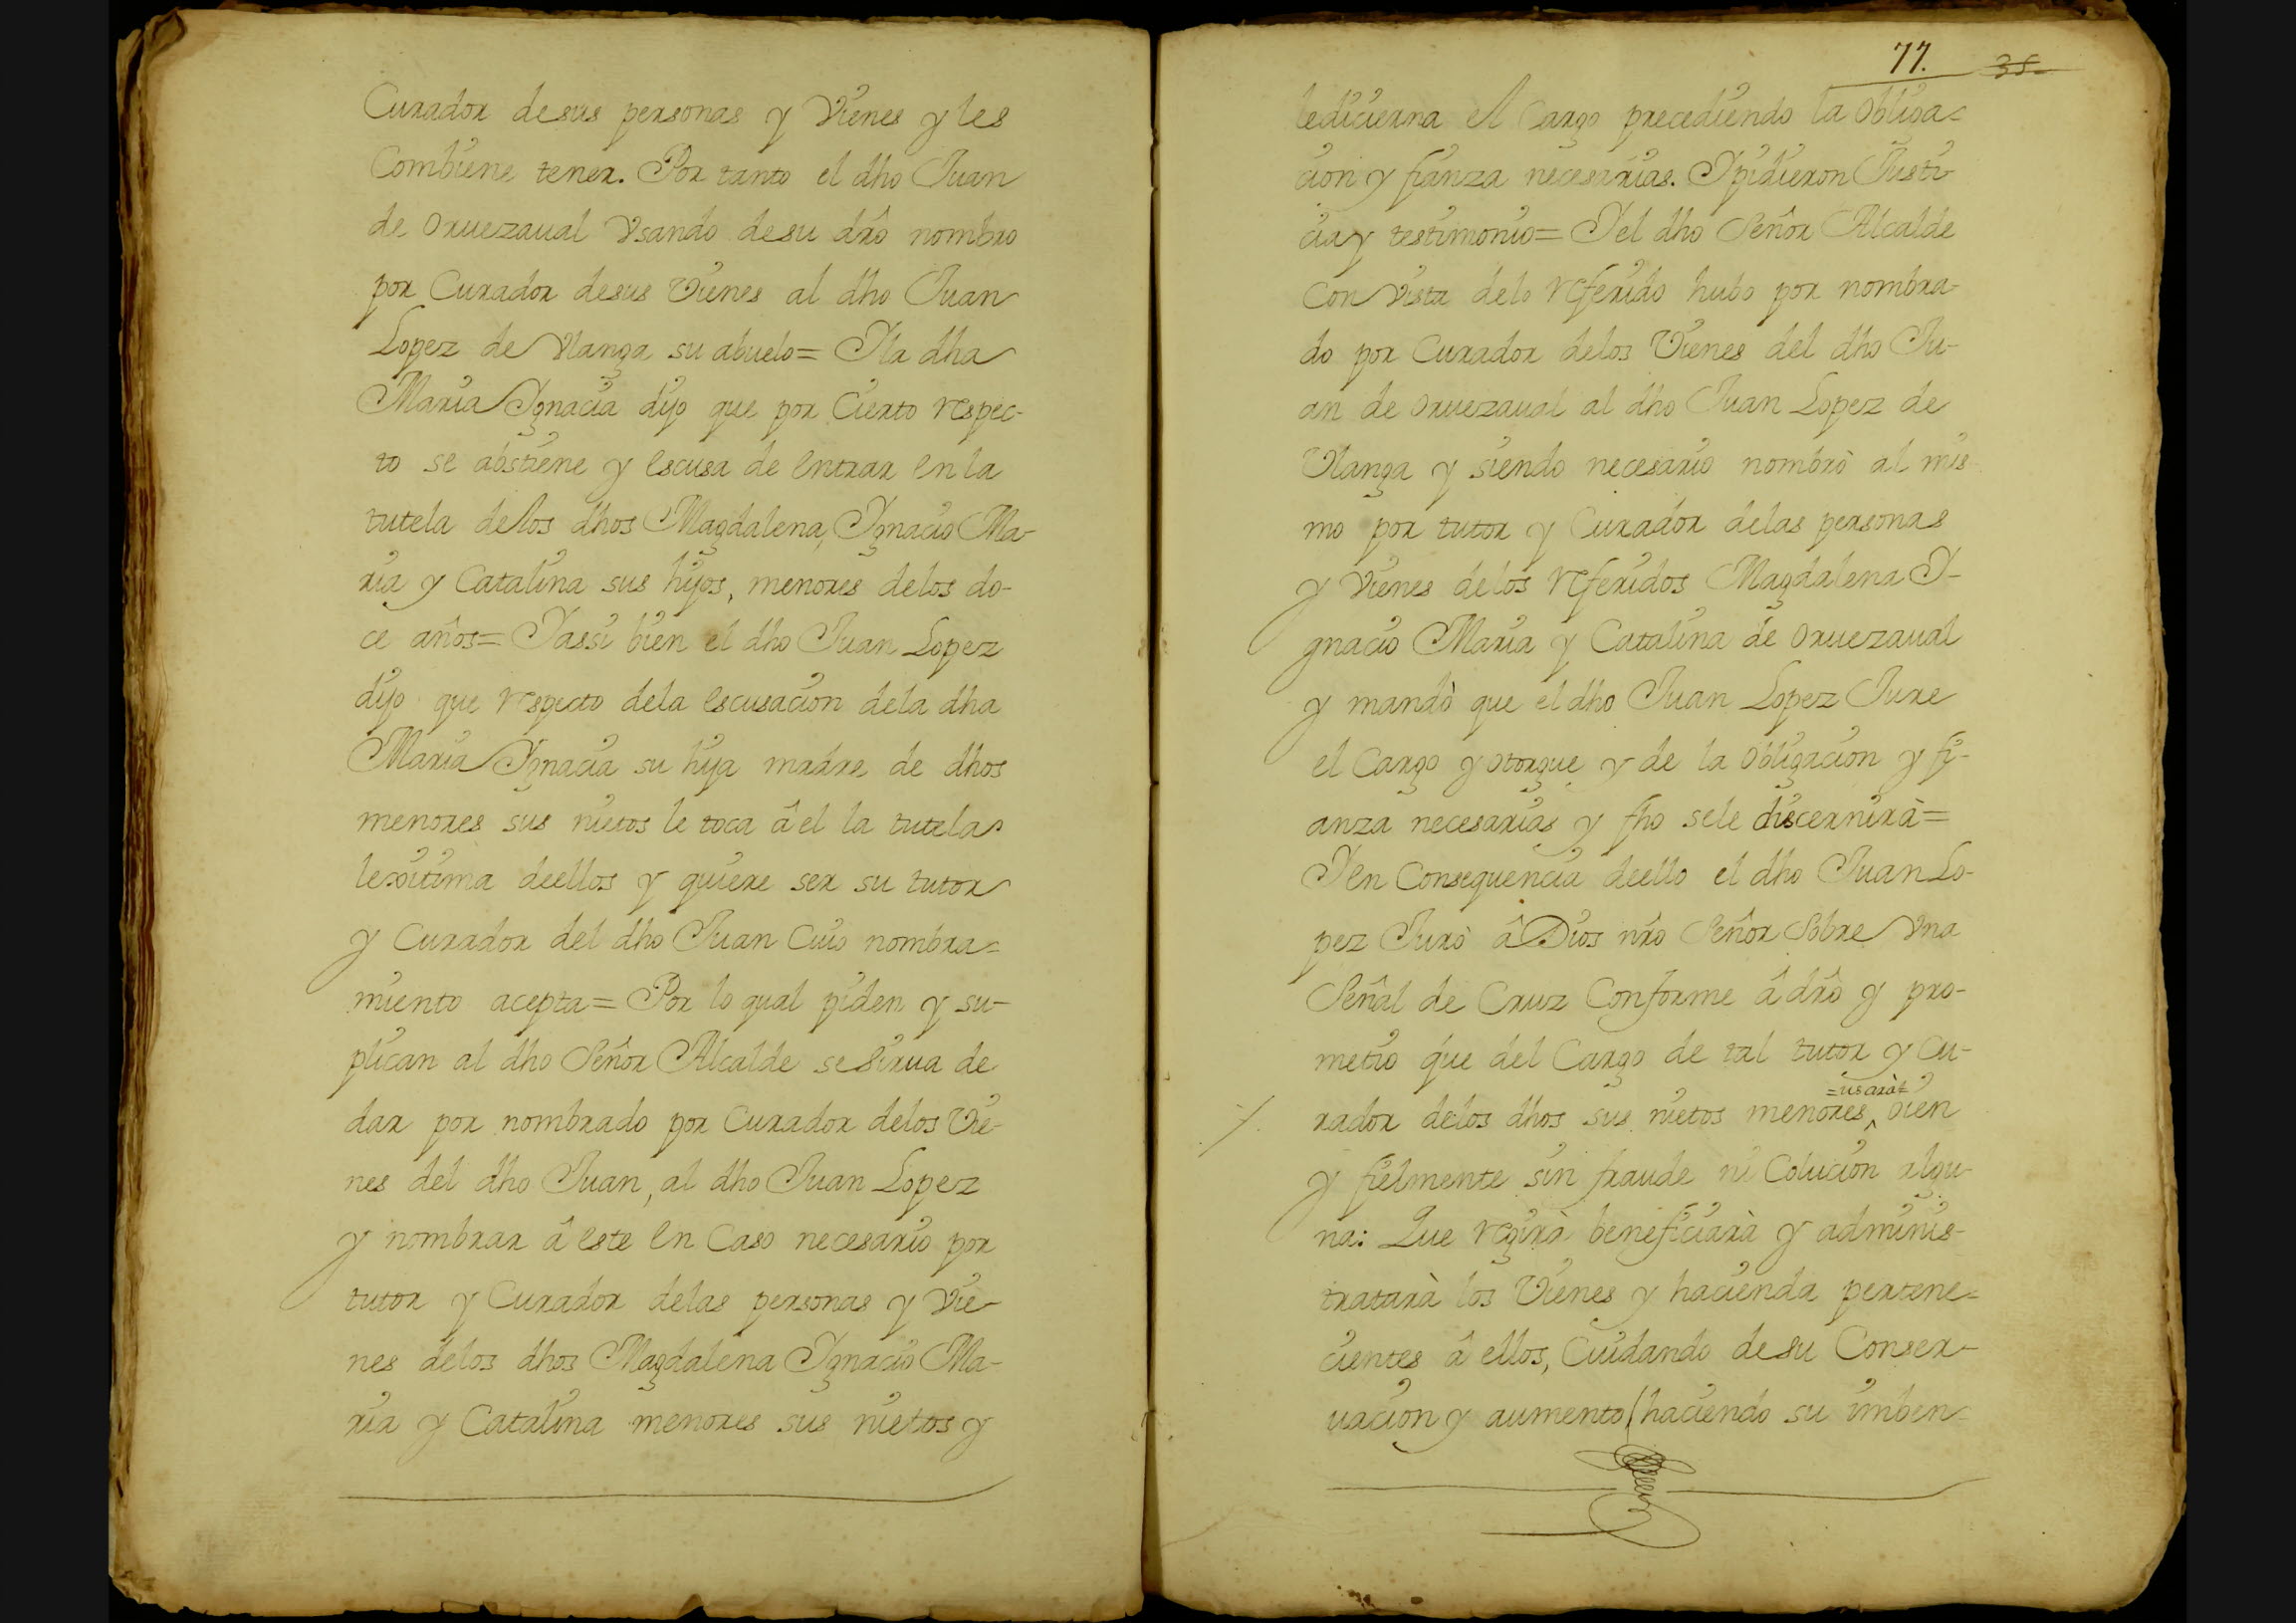 Curador desus personas y Vienes y les
Combiene tener. Por tanto el dho Juan
de Oruezaual Vsando desu drô nombro
por Curador desus Vienes al dho Juan
Lopez de Vlanga su abuelo= Yla dha
Maria Ygnacia dijo que por Cierto respec-
to se abstiene y escusa de entrar en la
tutela delos dhos Magdalena, Ygnacio Ma-
ria y Catalina sus hijos, menores delos do-
ce años= Yassi bien el dho Juan Lopez
dijo que respecto dela escusacion dela dha
Maria Ygnacia su hija madre de dhos
menores sus nietos le toca â el la tutela
lexitima deellos y quiere ser su tutor
y Curador del dho Juan Cuio nombra=
miento acepta= Por lo qual piden y su-
plican al dho Señor Alcalde se Sirua de
dar por nombrado por Curador delos Vie-
nes del dho Juan, al dho Juan Lopez
y nombrar â este en Caso necesario por
tutor y Curador delas personas y Vie-
nes delos dhos Magdalena Ygnacio Ma-
ria y Catalina menores sus nietos y
77. 35
ledicierna el Cargo precediendo la Obliga=
cion y fianza necesarias. Ypidieron Justi
cia y testimonio= Yel dho Señor Alcalde
Con Vista delo referido hubo por nombra-
do por Curador delos Vienes del dho Ju-
an de Oruezaual al dho Juan Lopez de
Vlanga y siendo necesario nombrò al mis-
mo por tutor y Curador delas personas
y Vienes delos referidos Magdalena Y-
gnacio Maria y Catalina de Oruezaual
y mandò que el dho Juan Lopez Jure
el Cargo y otorgue y de la Obligacion y fi-
anza necesarias y fho sele discernirà=
Yen Consequencia deello el dho Juan Lo-
pez Jurò â Dios nrô Señor Sobre Vna
Señal de Cruz Conforme â drô y pro-
metio que del Cargo de tal tutor y Cu-
=usarà=
rador delos dhos sus nietos menores^ bien
y fielmente sin fraude ni Colucion algu-
na: Que regirà beneficiarà y adminis-
tratarà los Vienes y hacienda pertene=
cientes â ellos, Cuidando de su Conser-
uacion y aumento, haciendo su imben-